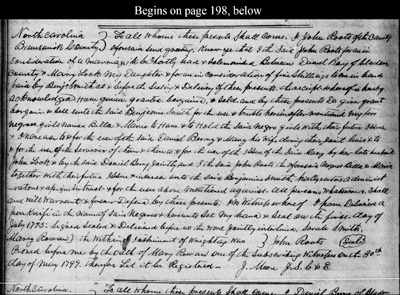 Begins on page 198, below
North Carolina } To all whome these presents Shall come. I John Roots of the County
Brunswick County } aforesaid send greeting. Know ye that I the said John Roots for an in
consideration of a marriage to be Shortly had & solemnized Between Daniel Bary of Bladen
County & Mary Look My Daughter & for an in Consideration of five Shillings to me in hand
paid by Benja Smith at & before the Sealing & Delivery of these presents the receipt whereof is hereby
acknowledged Have given granted bargained & Sold and by these presents Do give grant
bargain & Sell unto the said Benjamin Smith for the use & trusts hereinafter mentioned my two
negroes girls names Billa & Minna to Have & to Hold the said Negroe girls with their future Issue
& Increase to & for the use of the said Daniel Barry & Mary his Wife during their joint lives &
& for the use of the Survivor of them & then to & for the use of the Issue of the said Mary by her
John Look & by the said Daniel Bary jointly and I the said John Roots the aforesaid Negroes Billa & Minna
together with their future Issue & increase unto the said Benjamin Smith his executors Admini
strators & assigns in trust & for the uses above mentioned against All persons whatsoever Shall
and will Warrant & forever Defend by these presents. In Witness whereof I have Delivered a
penknife in the name of said Negroes & hereunto Set My hand & Seal on the first day of
July 1785. Signed Sealed & Delivered before us the Word jointly interlined Sarah Smith,
Mary Rowan } the Within Instrument of Writing Was } John Roots (Seal)
Proved before me by the Oath of Mary Rowan one of the Subscribing Witnesses on the 30th
day of May 1797. Therefore Let it be Registered. J. Moore J. S. C & E.
North Carolina } To all Whome these presents Shall come I Daniel Bary of Bladen